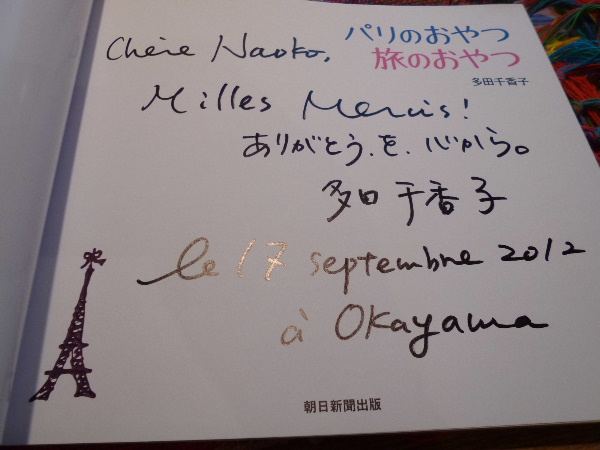 パリのおやつ
旅のおやつ
多田千香子
Chère Naoko,
Milles Mercis!
ありがとう、を、心から。
多田千香子
le 17 septembre 2012
à Okayama
朝日新聞出版